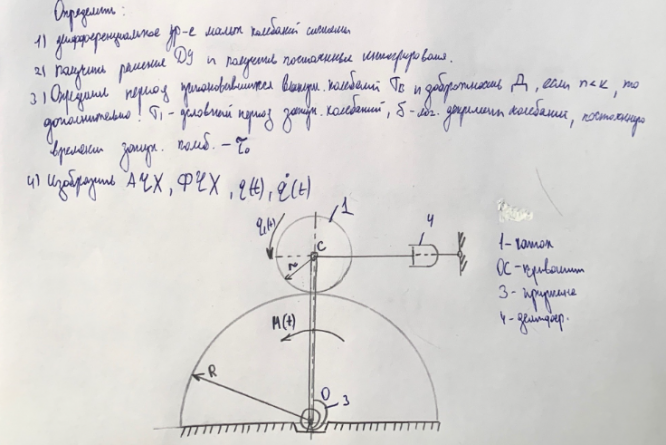 Определить:
1) дифференциальное ур-е малых колебаний системы
2) получить решение ДУ и получить постоянные интегрирования.
3) Определить период установившихся вынужд. колебаний Tв и добротность Д, если n<k, то
дополнительно: T₁ - условный период затух. колебаний, δ - лог. декремент колебаний, постоянную
времени затух. колеб. - τ₀
4) Изобразить АЧХ, ФЧХ, q(t), q̇(t)
q(t)
1
4
C
r
1 - каток
OC - кривошип
3 - пружина
4 - демпфер.
M(t)
R
O
3